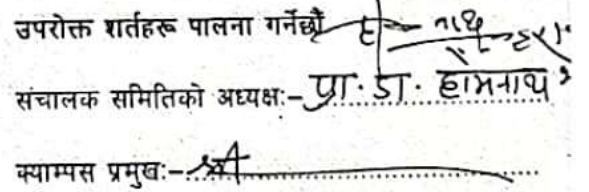 उपरोक्त शर्तहरू पालना गर्नेछौं
संचालक समितिको अध्यक्ष:- प्रा. डा. होमनाथ
क्याम्पस प्रमुख:- श्री